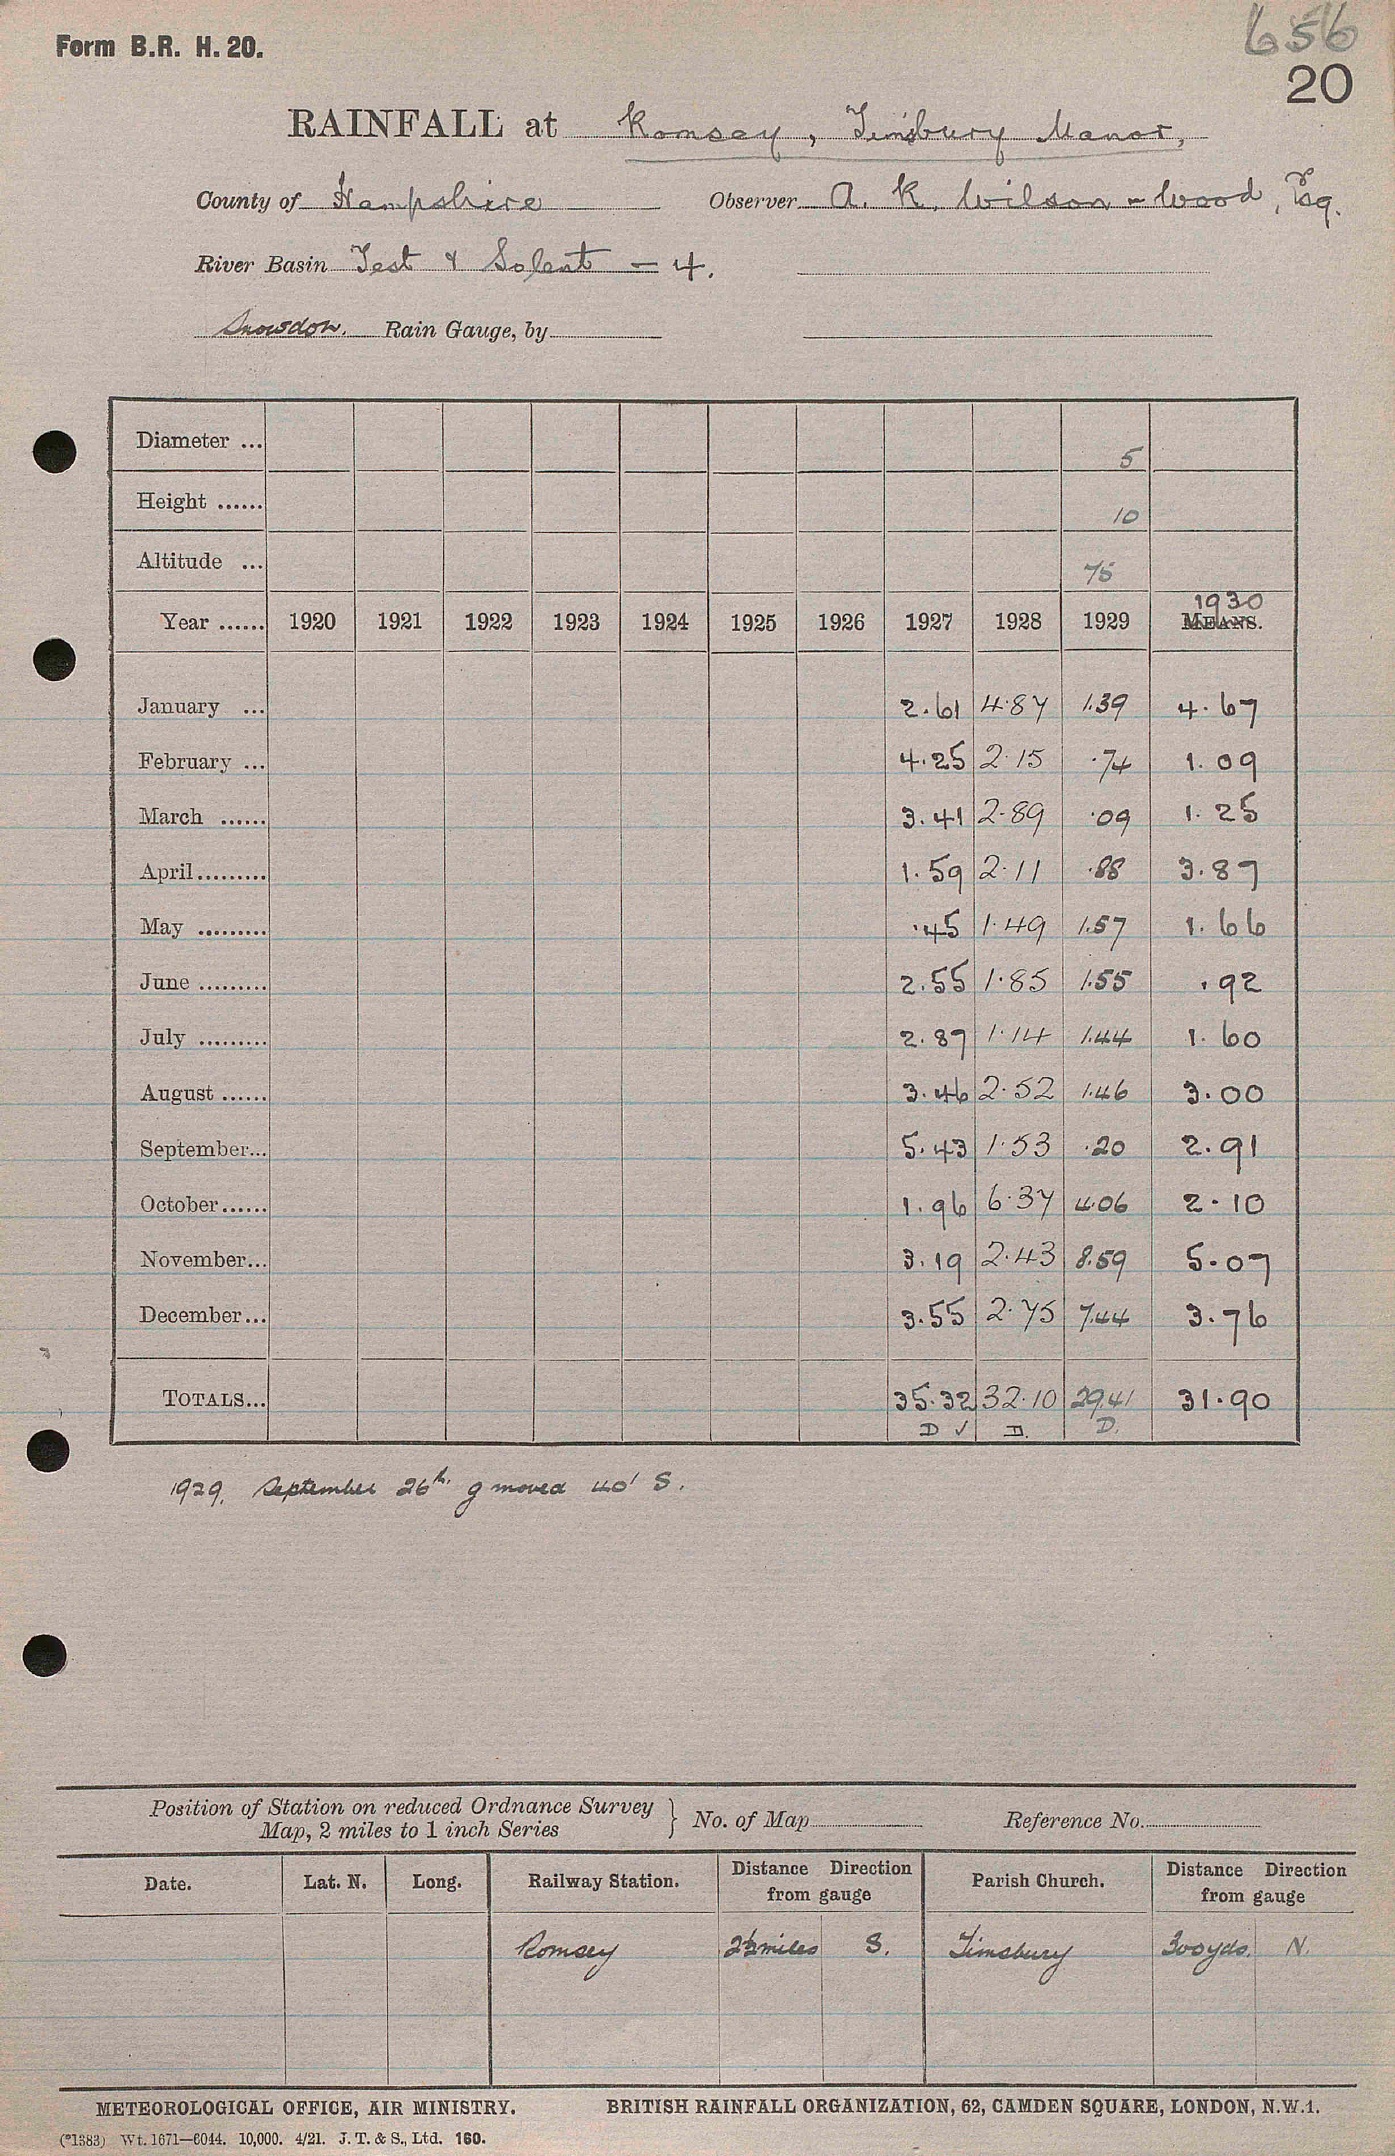 Form B.R. H. 20.
656
20
RAINFALL at Romsey, Timsbury Manor,
County of Hampshire Observer A. K. Wilson-Wood, Esq.
River Basin Test & Solent — 4.
Snowdon. Rain Gauge, by
Diameter ... 5
Height ...... 10
Altitude ... 75
Year ...... 1920 1921 1922 1923 1924 1925 1926 1927 1928 1929 1930 MEANS.
January ... 2.61 4.87 1.39 4.67
February ... 4.25 2.15 .74 1.09
March ...... 3.41 2.89 .09 1.25
April......... 1.59 2.11 .88 3.87
May ......... .45 1.49 1.57 1.66
June ......... 2.55 1.85 1.55 .92
July ......... 2.87 1.14 1.44 1.60
August ...... 3.46 2.52 1.46 3.00
September... 5.43 1.53 .20 2.91
October...... 1.96 6.37 4.06 2.10
November... 3.19 2.43 8.59 5.07
December... 3.55 2.75 7.44 3.76
TOTALS... 35.32 32.10 29.41 31.90
D ✓ D. D.
1929. September 26th. g moved 40' S.
Position of Station on reduced Ordnance Survey
Map, 2 miles to 1 inch Series } No. of Map Reference No.
Date. Lat. N. Long. Railway Station. Distance Direction from gauge Parish Church. Distance Direction from gauge
Romsey 2½ miles S. Timsbury 300 yds. N.
METEOROLOGICAL OFFICE, AIR MINISTRY. BRITISH RAINFALL ORGANIZATION, 62, CAMDEN SQUARE, LONDON, N.W.1.
(*1383) Wt. 1671—6044. 10,000. 4/21. J. T. & S., Ltd. 160.